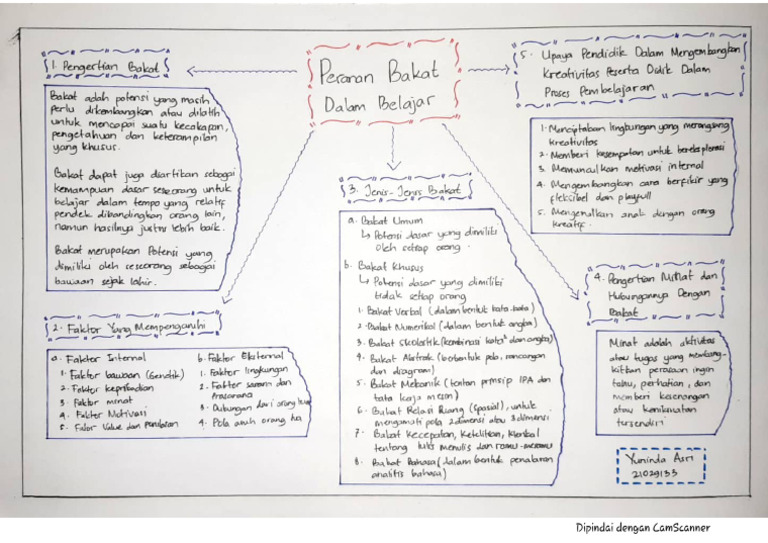 Peranan Bakat
Dalam Belajar
1. Pengertian Bakat
Bakat adah potensi yang masih
perlu dikembangkan atau dilatih
untuk mencapai suatu kecakapan,
pengetahuan dan keterampilan
yang khusus.
Bakat dapat juga diartikan sebagai
kemampuan dasar seseorang untuk
belajar dalam tempo yang relatif
pendek dibandingkan orang lain,
namun hasilnya justru lebih baik.
Bakat merupakan Potensi yang
dimiliki oleh seseorang sebagai
bawaan sejak lahir.
2. Faktor Yang Mempengaruhi
a. Faktor Internal
1. Faktor bawaan (Genetik)
2. Faktor kepribadian
3. Faktor minat
4. Faktor Motivasi
5. Fator Value dan
b. Faktor Eksternal
1. Faktor lingkungan
2. Faktor sarana dan
Prasarana
3. Dukungan dari orang tua
4. Pola asuh orang tua
3. Jenis-Jenis Bakat
a. Bakat Umum
↳ Potensi dasar yang dimiliki
oleh setiap orang.
b. Bakat Khusus
↳ Potensi dasar yang dimiliki
tidak setiap orang
1. Bakat Verbal (dalam bentuk kata-kata)
2. Bakat Numerikal (dalam bentuk angka)
3. Bakat Skolastik (kombinasi kata² dan angka)
4. Bakat Abstrak (berbentuk pola, rancangan
dan diagram)
5. Bakat Mekanik (tentang prinsip IPA dan
tata kerja mesin)
6. Bakat Relasi Ruang (Spasial), untuk
mengamati pola 2 dimensi atau 3 dimensi
7. Bakat Kecepatan, Ketelitian, Klerikal
tentang tulis menulis dan ramu-meramu
8. Bakat Bahasa (dalam bentuk penalaran
analitis bahasa)
4. Pengertian Minat dan
Hubungannya Dengan
Bakat
Minat adalah aktivitas
atau tugas yang membang-
kitkan perasaan ingin
tahu, perhatian, dan
memberi kesenangan
atau kenikmatan
tersendiri
5. Upaya Pendidik Dalam Mengembangkan
Kreativitas Peserta Didik Dalam
Proses Pembelajaran
1. Menciptakan lingkungan yang merangsang
kreativitas
2. Memberi kesempatan untuk bereksplorasi
3. Memunculkan motivasi internal
4. Mengembangkan cara berfikir yang
fleksibel dan playfull
5. Mengenalkan anak dengan orang
kreatif.
Yuninda Asri
21029133
Dipindai dengan CamScanner